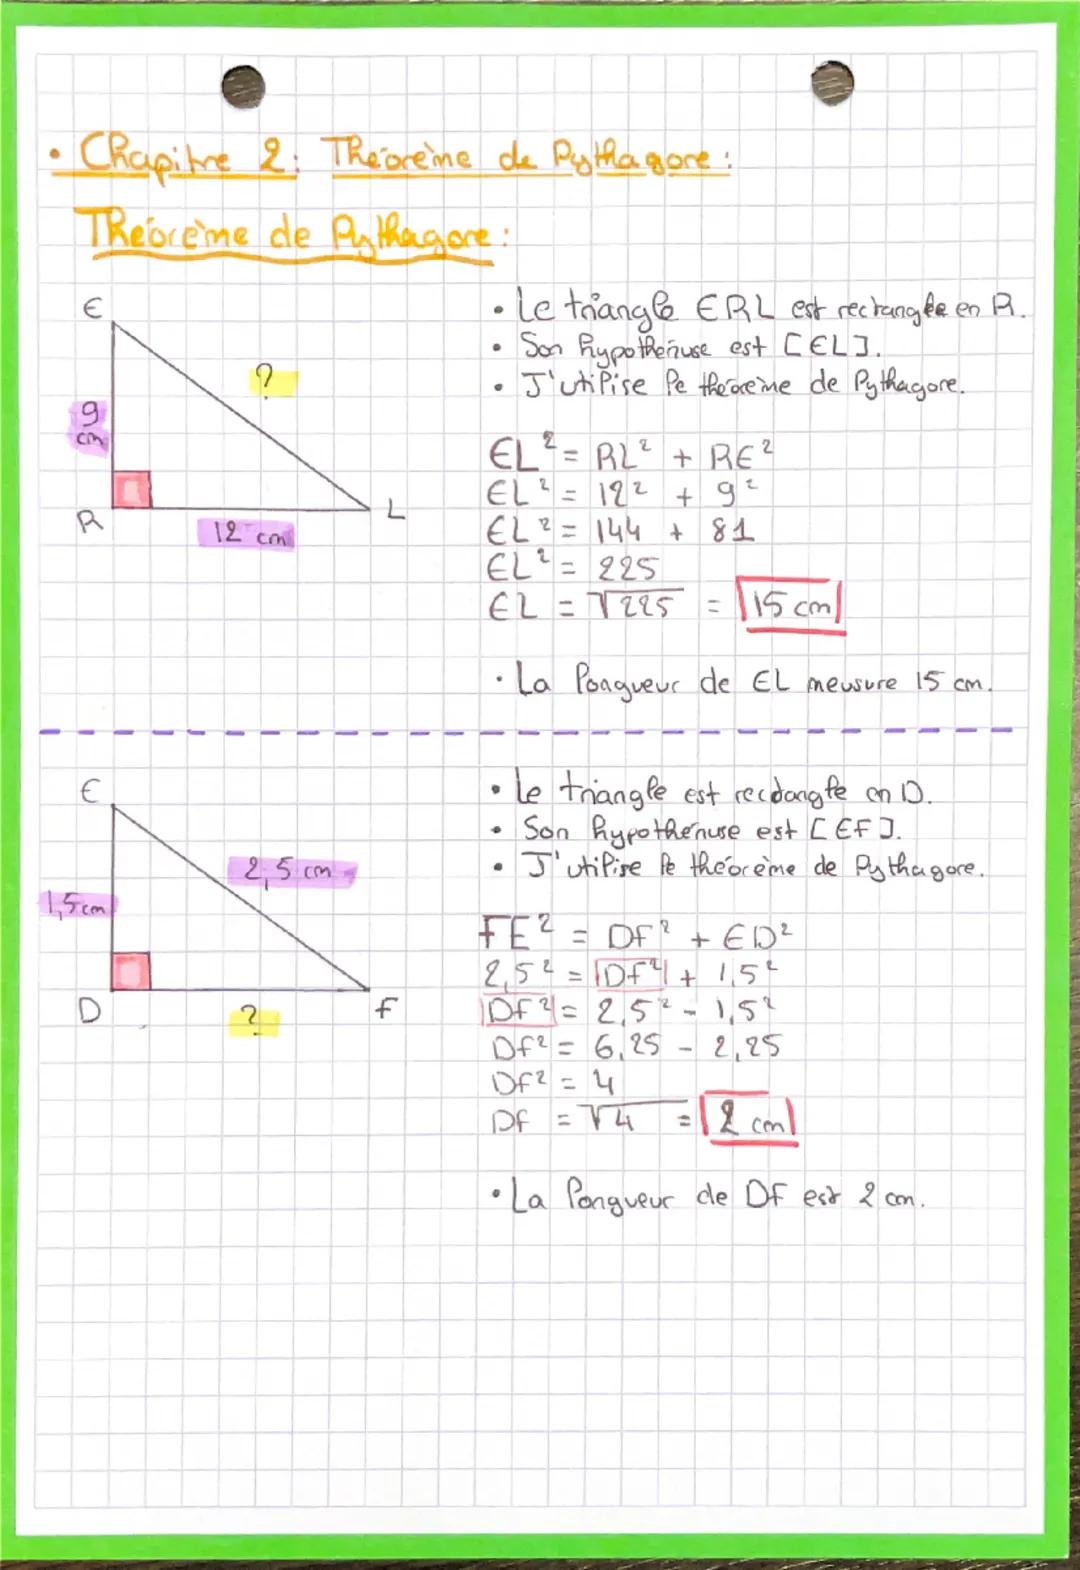 • Chapitre 2: Théorème de Pythagore :
Théorème de Pythagore :
E
?
9
cm
R
12 cm
L
• Le triangle ERL est rectangle en R.
• Son hypothénuse est [EL].
• J'utilise le théorème de Pythagore.
EL² = RL² + RE²
EL² = 12² + 9²
EL² = 144 + 81
EL² = 225
EL = √225 = 15 cm
• La longueur de EL meusure 15 cm.
E
2,5 cm
1,5 cm
D
?
F
• Le triangle est rectangle en D.
• Son hypothénuse est [EF].
• J'utilise le théorème de Pythagore.
FE² = DF² + ED²
2,5² = DF² + 1,5²
DF² = 2,5² - 1,5²
DF² = 6,25 - 2,25
DF² = 4
DF = √4 = 2 cm
• La longueur de DF est 2 cm.